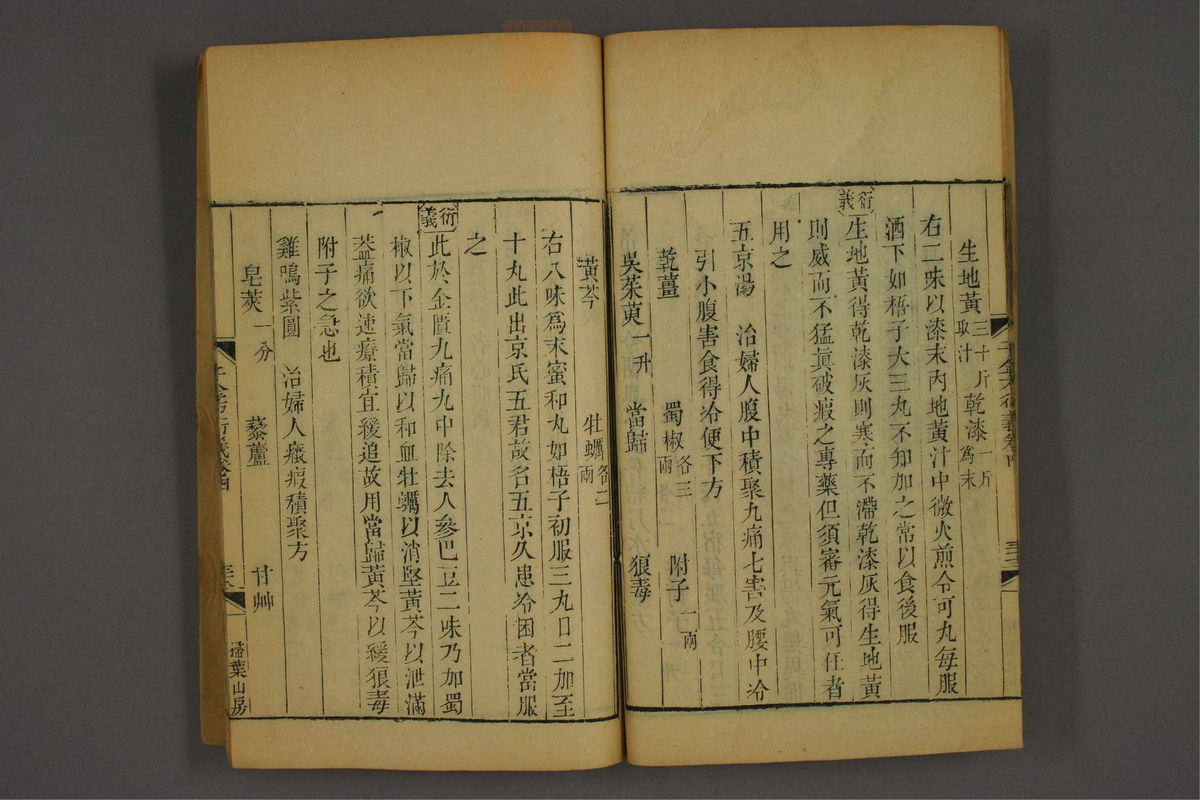 生地黃三十斤取汁 乾漆一斤為末
右二味以漆末內地黃汁中微火煎令可丸每服
酒下如梧子大三丸不知加之常以食後服
衍義
生地黃得乾漆灰則寒而不滯乾漆灰得生地黃
則威而不猛眞破瘕之專藥但須審元氣可任者
用之
五京湯 治婦人腹中積聚九痛七害及腰中冷
引小腹害食得冷便下方
乾薑 蜀椒各三兩 附子一兩
吳茱萸一升 當歸 狼毒
黃芩 牡蠣各二兩
右八味爲末蜜和丸如梧子初服三丸日二加至
十丸此出京氏五君故名五京久患冷困者當服
之
衍義
此於金匱九痛丸中除去人參巴豆二味乃加蜀
椒以下氣當歸以和血牡蠣以消堅黃芩以泄滿
葢痛欲速療積宜緩追故用當歸黃芩以緩狼毒
附子之急也
雞鳴紫圓 治婦人癥瘕積聚方
皂莢一分 藜蘆 甘艸
掃葉山房